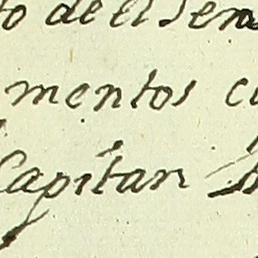 to de el Sen
mentos c
Capitan